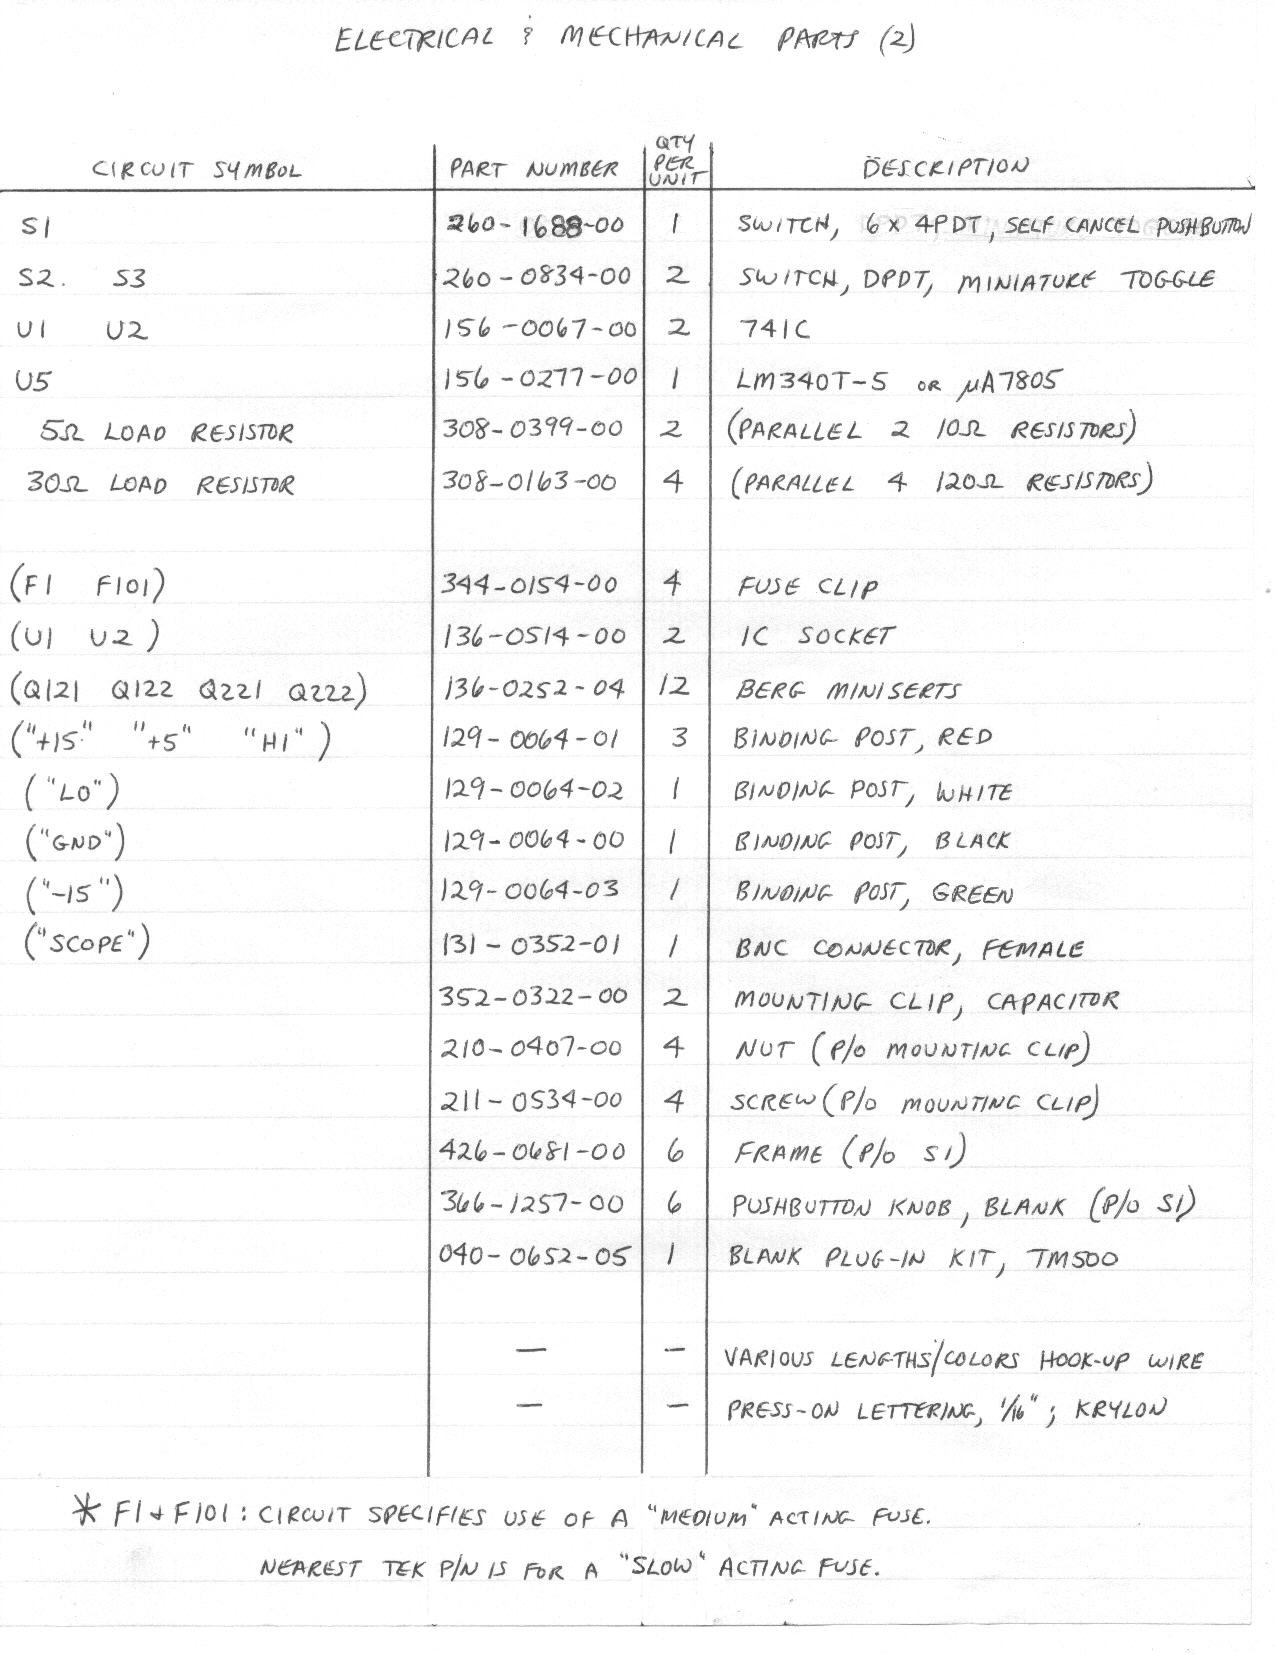 ELECTRICAL & MECHANICAL PARTS (2)
CIRCUIT SYMBOL PART NUMBER QTY PER UNIT DESCRIPTION
S1 260-1688-00 1 SWITCH, 6 x 4PDT, SELF CANCEL PUSHBUTTON
S2. S3 260-0834-00 2 SWITCH, DPDT, MINIATURE TOGGLE
U1 U2 156-0067-00 2 741C
U5 156-0277-00 1 LM340T-5 OR µA7805
5Ω LOAD RESISTOR 308-0399-00 2 (PARALLEL 2 10Ω RESISTORS)
30Ω LOAD RESISTOR 308-0163-00 4 (PARALLEL 4 120Ω RESISTORS)
(F1 F101) 344-0154-00 4 FUSE CLIP
(U1 U2) 136-0514-00 2 IC SOCKET
(Q121 Q122 Q221 Q222) 136-0252-04 12 BERG MINISERTS
("+15" "+5" "HI") 129-0064-01 3 BINDING POST, RED
("LO") 129-0064-02 1 BINDING POST, WHITE
("GND") 129-0064-00 1 BINDING POST, BLACK
("-15") 129-0064-03 1 BINDING POST, GREEN
("SCOPE") 131-0352-01 1 BNC CONNECTOR, FEMALE
352-0322-00 2 MOUNTING CLIP, CAPACITOR
210-0407-00 4 NUT (P/O MOUNTING CLIP)
211-0534-00 4 SCREW (P/O MOUNTING CLIP)
426-0681-00 6 FRAME (P/O S1)
366-1257-00 6 PUSHBUTTON KNOB, BLANK (P/O S1)
040-0652-05 1 BLANK PLUG-IN KIT, TM500
— — VARIOUS LENGTHS/COLORS HOOK-UP WIRE
— — PRESS-ON LETTERING, 1/16"; KRYLON
* F1 & F101: CIRCUIT SPECIFIES USE OF A "MEDIUM" ACTING FUSE.
NEAREST TEK P/N IS FOR A "SLOW" ACTING FUSE.